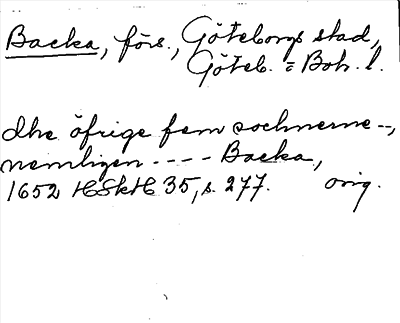 Backa, förs., Göteborgs stad,
Göteb. = Boh. l.
dhe öfrige fem sochnerne --,
nemligen ---- Backa,
1652 HSkH 35, s. 277. orig.